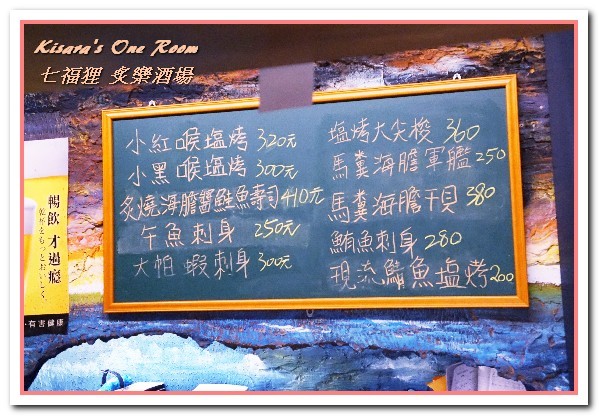 Kisara's One Room
七福狸 炙樂酒場
小紅喉塩烤 320元
小黑喉塩烤 300元
炙燒海膽醬鮭魚壽司 410元
午魚刺身 250元
大怕蝦刺身 300元
塩烤大尖梭 360
馬糞海膽軍艦 250
馬糞海膽干貝 380
鮪魚刺身 280
現流鯧魚塩烤 200
暢飲才過癮
乾杯をもっとおいしく
有害健康